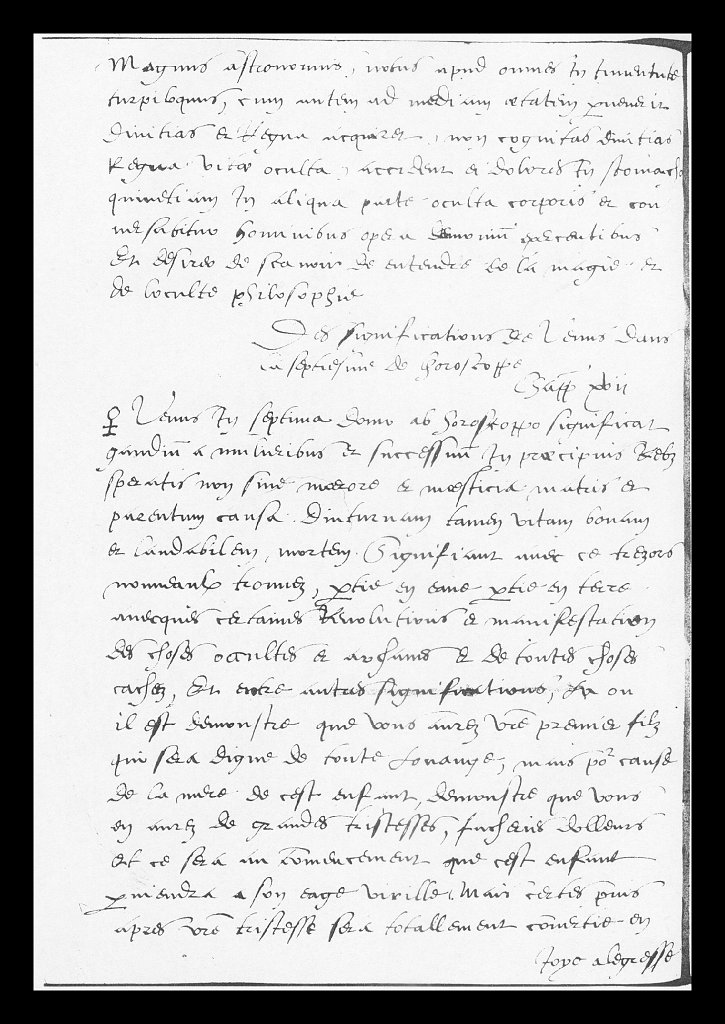 Magnus astronomus, notus apud omnes in iuventute
turpiloquus, cum autem ad mediam etatem pervenerit
Divitias et Regna acquiret, non cognitas divitias
Regna vita oculta, accident ei dolores in stomacho
quinetiam in aliqua parte oculta corporis et con
versabitur hominibus opera demonum exercentibus
Et desire de scavoir et entendre de la magie et
de loculte philosophie
Des significations de Venus dans
la septiesme de horoscoppe
Chapp xvii
♀ Venus in septima domo ab horoscoppo significat
gaudiū a mulieribus et successum in præcipuis Rebz
speratis non sine mærore et mæsticia matris et
parentum causa. Diuturnam tamen vitam bonam
et laudabilem, mortem. Signifiant avec ce trezors
nouveaulx trouvez, ptie en eaue ptie en terre
avecques certaines Revolutions et manifestation
des choses occultes et archanes et de toutes choses
cachez, Et entre autres significations, la ou
il est demonstre que vous aurez vrē premier filz
qui sera digne de toute Louange, mais po cause
de la mere de cest enfant, demonstre que vous
en aurez de grandes tristesses, facheries dolleurs
Et ce sera au cōmencement que cest enfant
pviendra a son eage virille. Mais certes puis
apres vrē tristesse sera totallement cōvertie en
Joye alegresse